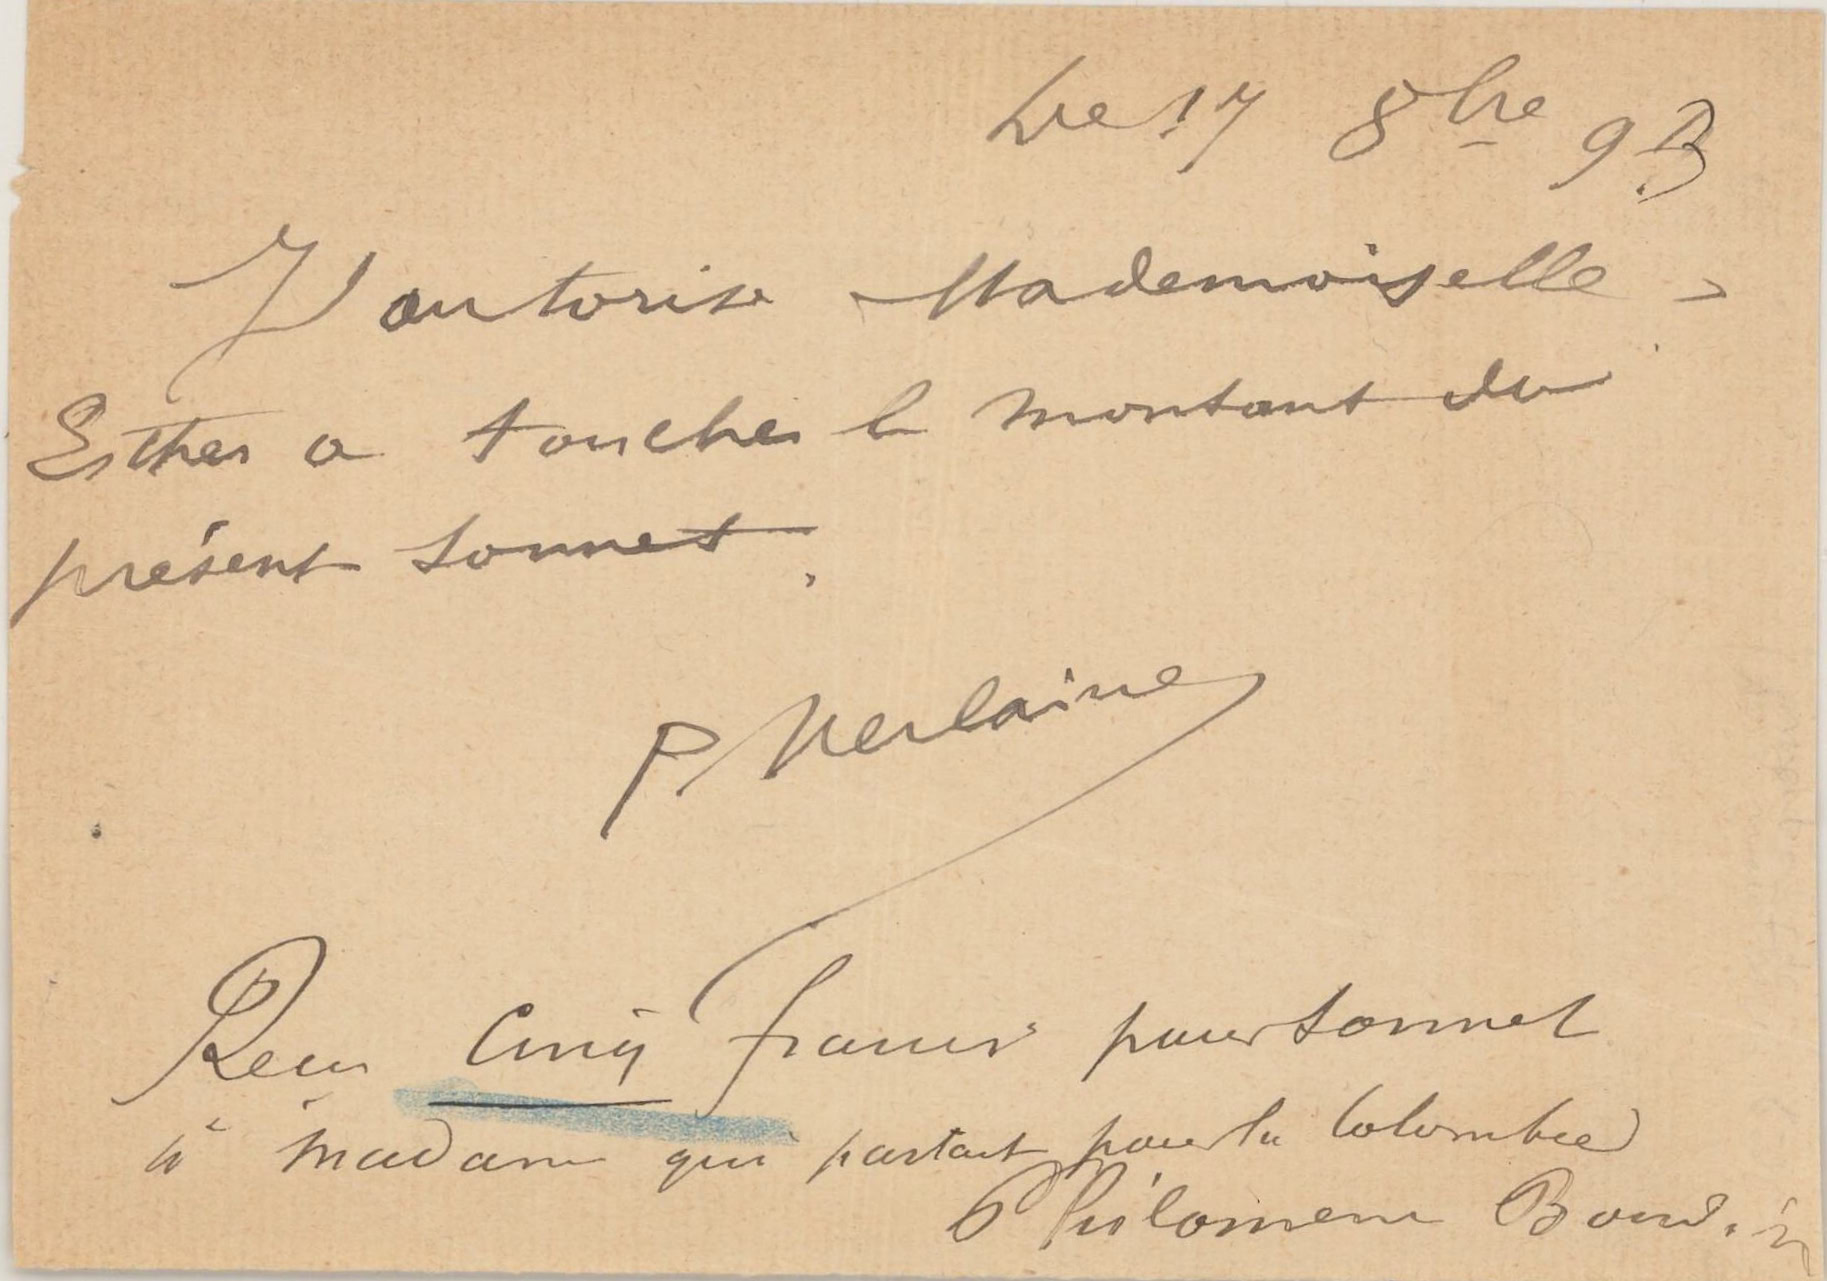 Le 17 8bre 93
J'autorise Mademoiselle
Esther a toucher le montant du
présent sonnet.
P Verlaine
Recu cinq francs pour sonnet
à madame qui partait pour la Colombie
Philomene Boudin